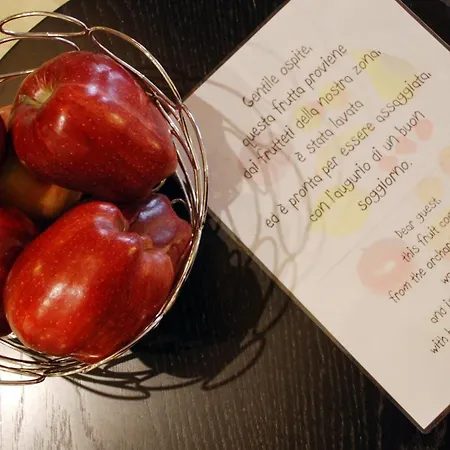 Gentile ospite,
questa frutta proviene
dai frutteti della nostra zona,
è stata lavata
ed è pronta per essere assaggiata,
con l'augurio di un buon
soggiorno.
Dear guest,
this fruit
from the
and
with